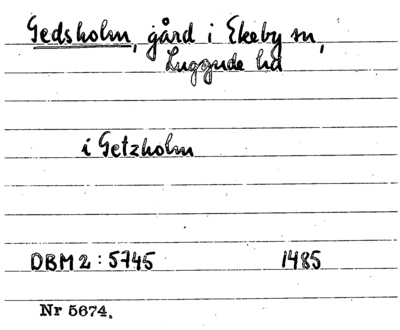 Gedsholm, gård i Ekeby sn,
Luggude hd
i Getzholm
DBM 2: 5745 1485
Nr 5674.